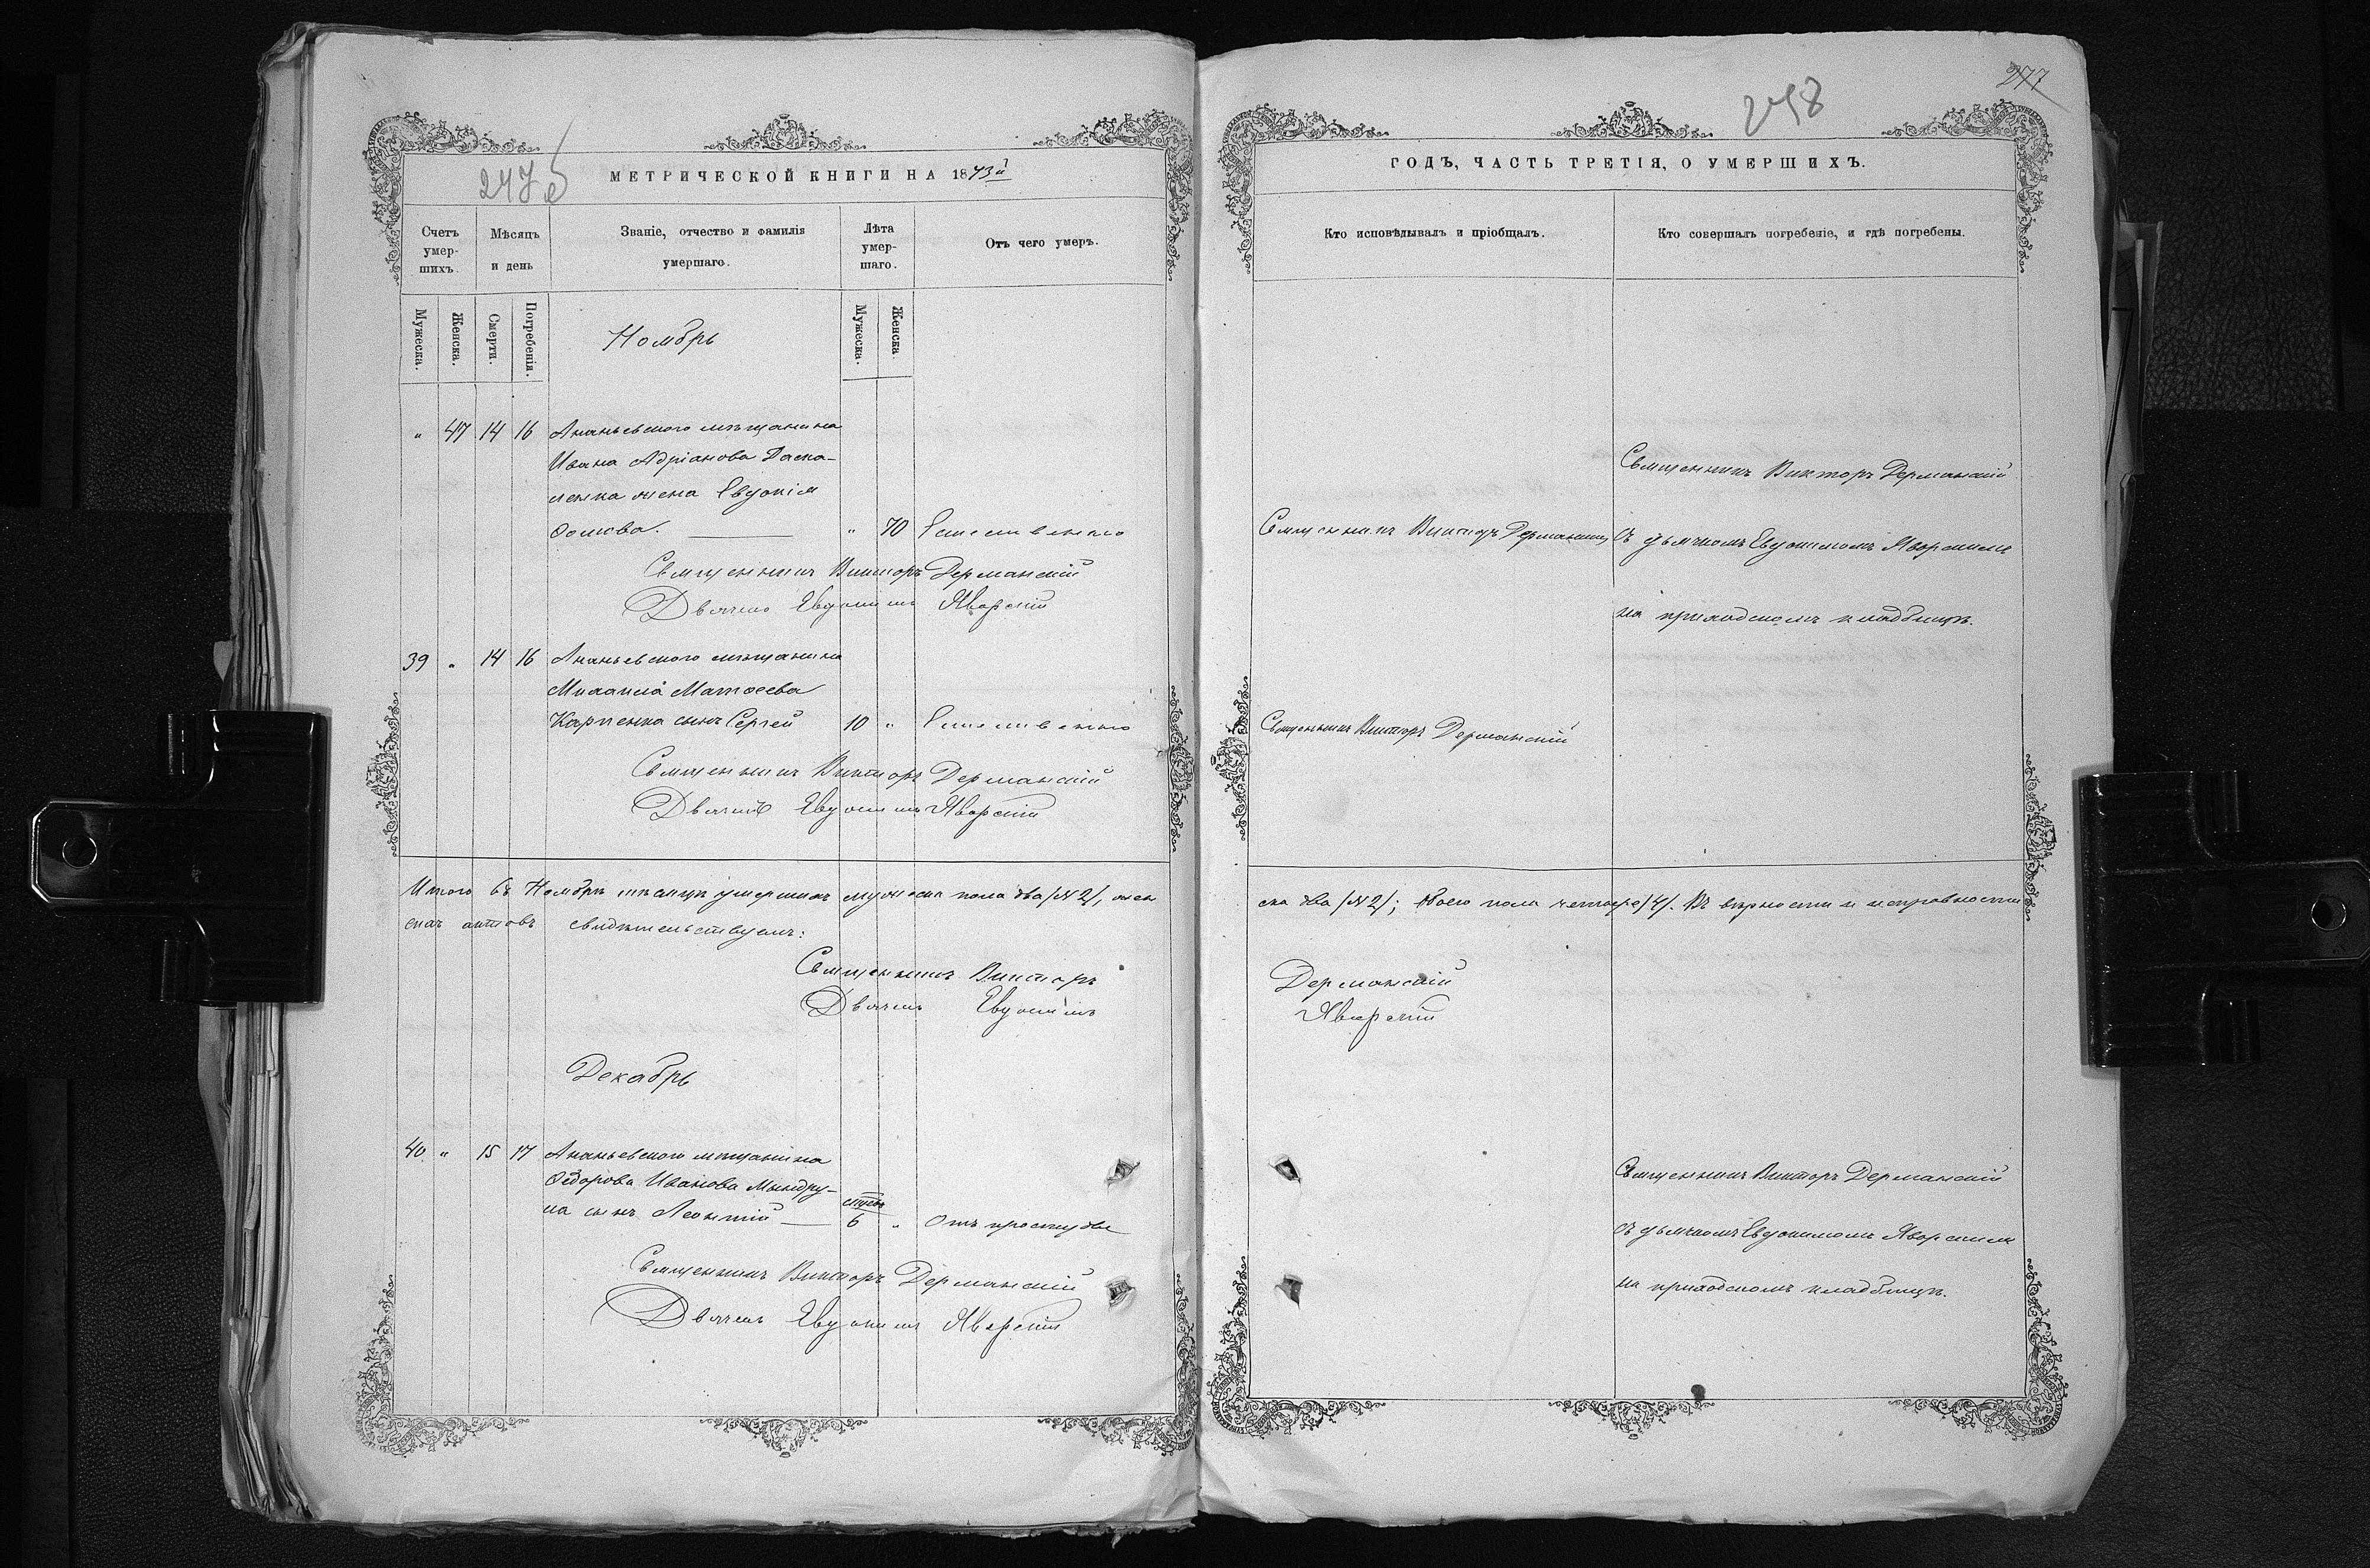 247 об
МЕТРИЧЕСКОЙ КНИГИ НА 1873й
Счетъ умер-шихъ.
Мѣсяцъ и день
Званіе, отчество и фамилія умершаго.
Лѣта умер-шаго.
Отъ чего умеръ.
Мужеска.
Женска.
Смерти.
Погребенія.
Мужеска.
Женска
Ноябрь
" 47 14 16 Ананьевскаго мѣщанина
Ивана Адріанова Паска-
ленка жена Евдокія
Фомова. " 70 Естественно
Священникъ Викторъ Дерманскій
Дьячекъ Евдокимъ Яворскій
39 " 14 16 Ананьевскаго мѣщанина
Михаила Матѳеева
Карпенка сынъ Сергей 10 " Естественно
Священникъ Викторъ Дерманскій
Дьячекъ Евдокимъ Яворскій
Итого въ Ноябрѣ мѣсяцѣ умершихъ мужеска пола два /№ 2/, жен
скихъ актовъ свидѣтельствуемъ:
Священникъ Викторъ
Дьячекъ Евдокимъ
Декабрь
40 " 15 17 Ананьевскаго мѣщанина
Ѳедорова Иванова Мындру-
на сынъ Леонтій 6 " Отъ простуды
Священникъ Викторъ Дерманскій
Дьячекъ Евдокимъ Яворскій
277
248
ГОДЪ, ЧАСТЬ ТРЕТІЯ, О УМЕРШИХЪ.
Кто исповѣдывалъ и пріобщалъ.
Кто совершалъ погребеніе, и гдѣ погребены.
Священникъ Викторъ Дерманскій
Священникъ Викторъ Дерманскій
съ дьячкомъ Евдокимомъ Яворскимъ
на приходскомъ кладбищѣ.
Священникъ Викторъ Дерманскій
ска два /№ 2/; обоего пола четыре /4/. Въ вѣрности и исправности
Дерманскій
Яворскій
Священникъ Викторъ Дерманскій
съ дьячкомъ Евдокимомъ Яворскимъ
на приходскомъ кладбищѣ.